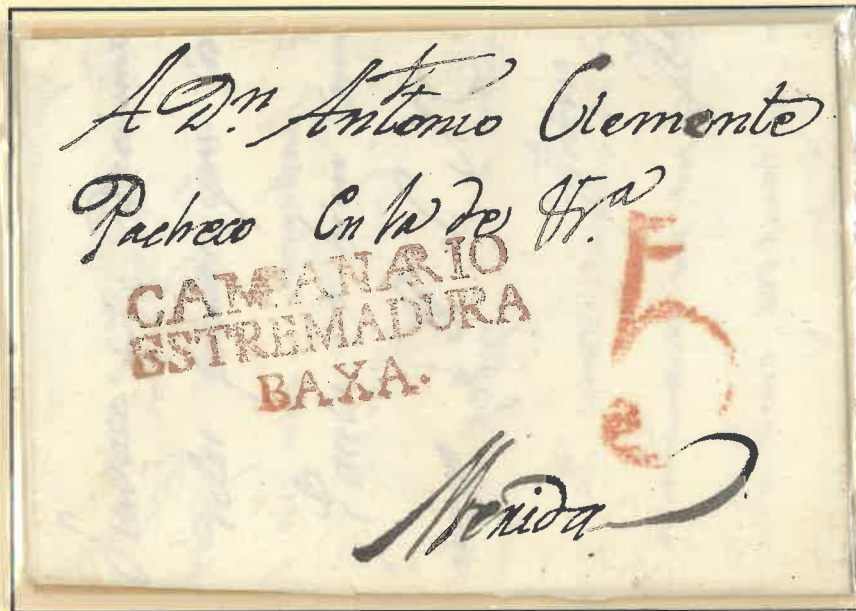 A Dn. Antonio Clemente
Pacheco En la de
CAMPANARIO
ESTREMADURA
BAXA.
5
Merida